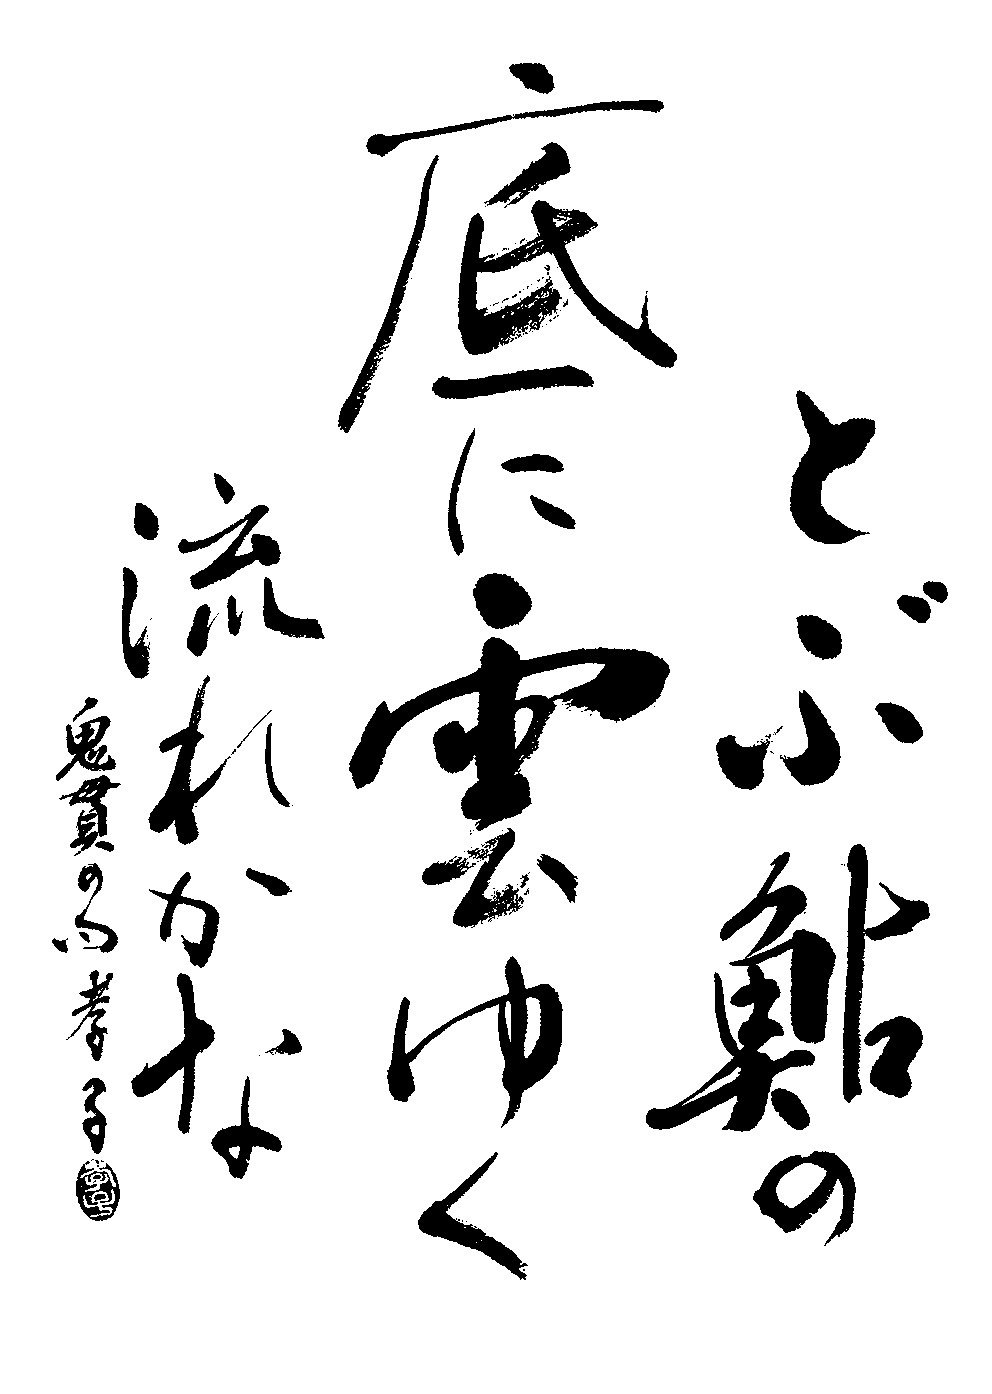 とぶ鮎の
底に雲ゆく
流れかな
鬼貫の句 孝子